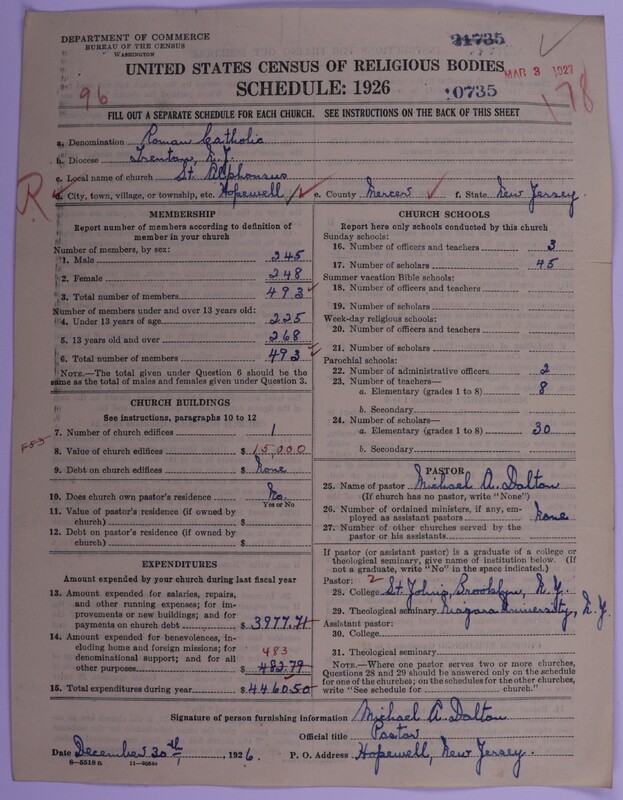 DEPARTMENT OF COMMERCE
BUREAU OF THE CENSUS
WASHINGTON
UNITED STATES CENSUS OF RELIGIOUS BODIES
SCHEDULE: 1926
MAR 3 1927
10735
96
178
FILL OUT A SEPARATE SCHEDULE FOR EACH CHURCH. SEE INSTRUCTIONS ON THE BACK OF THIS SHEET
a. Denomination Roman Catholic
b. Diocese Trenton, N.J.
c. Local name of church St. Alphonsus
R
d. City, town, village, or township, etc. Hopewell e. County Mercer f. State New Jersey.
MEMBERSHIP
Report number of members according to definition of
member in your church
Number of members, by sex:
1. Male 245
2. Female 248
3. Total number of members 493
Number of members under and over 13 years old:
4. Under 13 years of age 225
5. 13 years old and over 268
6. Total number of members 493
NOTE.—The total given under Question 6 should be the
same as the total of males and females given under Question 3.
CHURCH BUILDINGS
See instructions, paragraphs 10 to 12
7. Number of church edifices 1
8. Value of church edifices $ 15,000
9. Debt on church edifices $ None
10. Does church own pastor's residence No.
Yes or No
11. Value of pastor's residence (if owned by
church) $
12. Debt on pastor's residence (if owned by
church) $
EXPENDITURES
Amount expended by your church during last fiscal year
13. Amount expended for salaries, repairs,
and other running expenses; for im-
provements or new buildings; and for
payments on church debt $ 3977.71
14. Amount expended for benevolences, in-
cluding home and foreign missions; for
denominational support; and for all
other purposes $ 482.79
483
15. Total expenditures during year $ 4460.50
CHURCH SCHOOLS
Report here only schools conducted by this church
Sunday schools:
16. Number of officers and teachers 3
17. Number of scholars 45
Summer vacation Bible schools:
18. Number of officers and teachers
19. Number of scholars
Week-day religious schools:
20. Number of officers and teachers
21. Number of scholars
Parochial schools:
22. Number of administrative officers 2
23. Number of teachers—
a. Elementary (grades 1 to 8) 8
b. Secondary
24. Number of scholars—
a. Elementary (grades 1 to 8) 30
b. Secondary
PASTOR
25. Name of pastor Michael A. Dalton
(If church has no pastor, write "None")
26. Number of ordained ministers, if any, em-
ployed as assistant pastors None
27. Number of other churches served by the
pastor or his assistants
If pastor (or assistant pastor) is a graduate of a college or
theological seminary, give name of institution below. (If
not a graduate, write "No" in the space indicated.)
Pastor: 2
28. College St. Johns, Brooklyn, N.Y.
29. Theological seminary Niagara University, N.Y
Assistant pastor:
30. College
31. Theological seminary
NOTE.—Where one pastor serves two or more churches,
Questions 28 and 29 should be answered only on the schedule
for one of the churches; on the schedules for the other churches,
write "See schedule for church."
Signature of person furnishing information Michael A. Dalton
Official title Pastor
Date December 30th, 1926. P. O. Address Hopewell, New Jersey.
8—5518 a